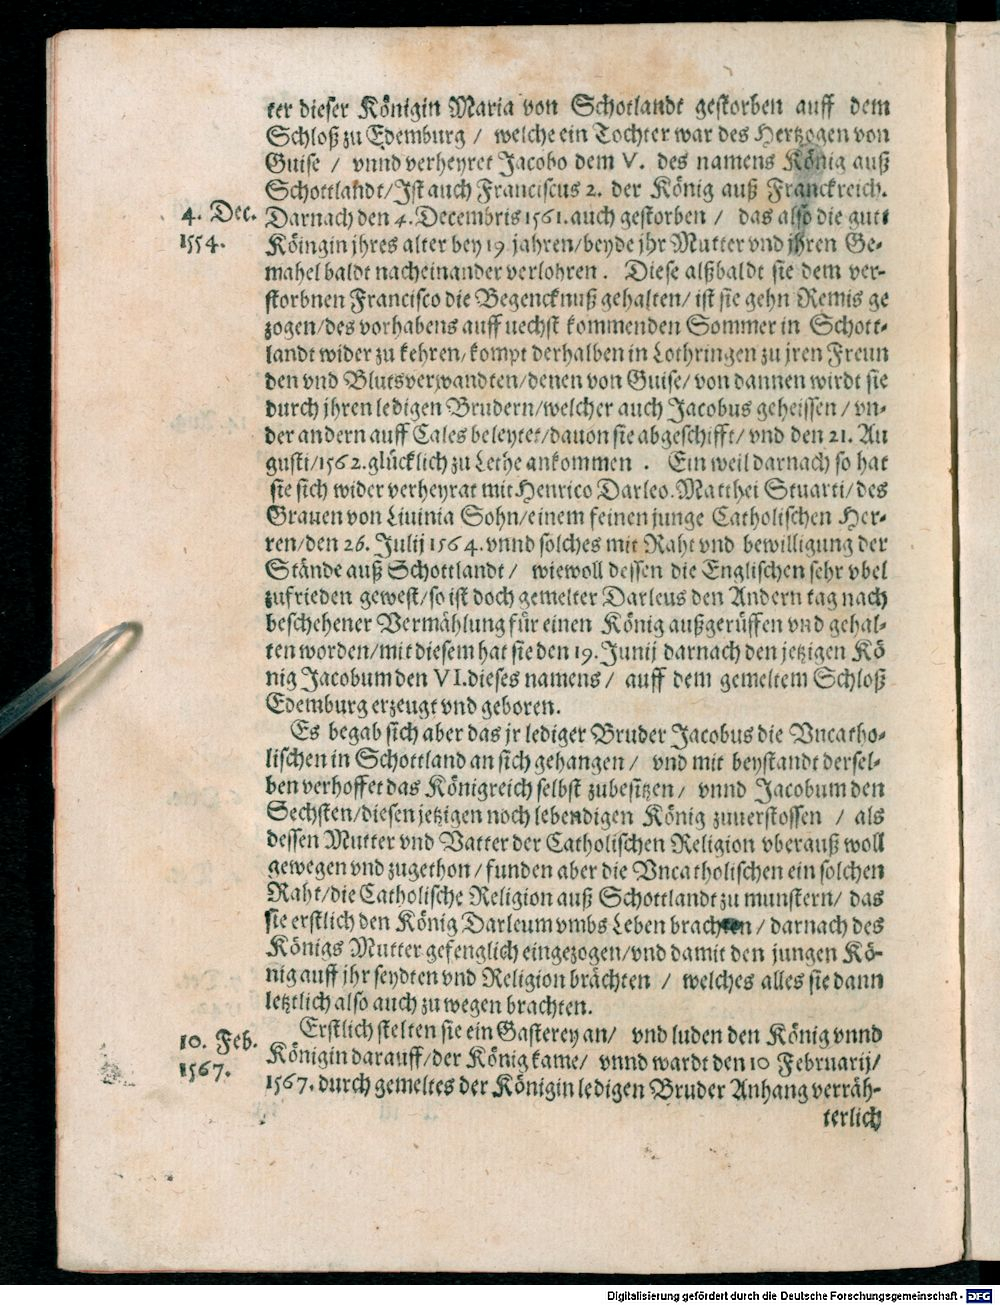 ter dieser Königin Maria von Schotlandt gestorben auff dem
Schloß zu Edemburg / welche ein Tochter war des Hertzogen von
Guise / vnnd verheyret Jacobo dem V. des namens König auß
Schottlandt/Ist auch Franciscus 2. der König auß Franckreich.
4. Dec. Darnach den 4. Decembris 1561. auch gestorben / das also die gute
1554. Köingin jhres alter bey 19 jahren/beyde jhr Mutter vnd jhren Ge-
mahel baldt nacheinander verlohren. Diese alßbaldt sie dem ver-
storbnen Francisco die Begencknuß gehalten/ ist sie gehn Remis ge
zogen/des vorhabens auff uechst kommenden Sommer in Schott-
landt wider zu kehren/kompt derhalben in Lothringen zu jren Freun
den vnd Blutsverwandten/denen von Guise/ von dannen wirdt sie
durch jhren ledigen Brudern/welcher auch Jacobus geheissen / vn-
der andern auff Cales beleytet/dauon sie abgeschifft/ vnd den 21. Au
gusti/1562. glücklich zu Lethe ankommen. Ein weil darnach so hat
sie sich wider verheyrat mit Henrico Darleo. Matthei Stuarti/ des
Grauen von Liuinia Sohn/einem feinen junge Catholischen Her-
ren/den 26. Julij 1564. vnnd solches mit Raht vnd bewilligung der
Stände auß Schottlandt / wiewoll dessen die Englischen sehr vbel
zufrieden gewest/so ist doch gemelter Darleus den Andern tag nach
beschehener Vermählung für einen König außgerüffen vnd gehal-
ten worden/mit diesem hat sie den 19. Junij darnach den jetzigen Kö
nig Jacobum den VI. dieses namens / auff dem gemeltem Schloß
Edemburg erzeugt vnd geboren.
Es begab sich aber das jr lediger Bruder Jacobus die Vncatho-
lischen in Schottland an sich gehangen / vnd mit beystandt dersel-
ben verhoffet das Königreich selbst zubesitzen / vnnd Jacobum den
Sechsten/diesen jetzigen noch lebendigen König zuuerstossen / als
dessen Mutter vnd Vatter der Catholischen Religion vberauß woll
gewegen vnd zugethon / funden aber die Vncatholischen ein solchen
Raht/die Catholische Religion auß Schottlandt zu munstern/ das
sie erstlich den König Darleum vmbs Leben brachten / darnach des
Königs Mutter gefenglich eingezogen/vnd damit den jungen Kö-
nig auff jhr seydten vnd Religion brächten / welches alles sie dann
letztlich also auch zu wegen brachten.
Erstlich stelten sie ein Gasterey an/ vnd luden den König vnnd
10. Feb. Königin darauff/der König kame/ vnnd wardt den 10 Februarij/
1567. 1567. durch gemeltes der Königin ledigen Bruder Anhang verräh-
terlich
Digitalisierung gefördert durch die Deutsche Forschungsgemeinschaft - DFG